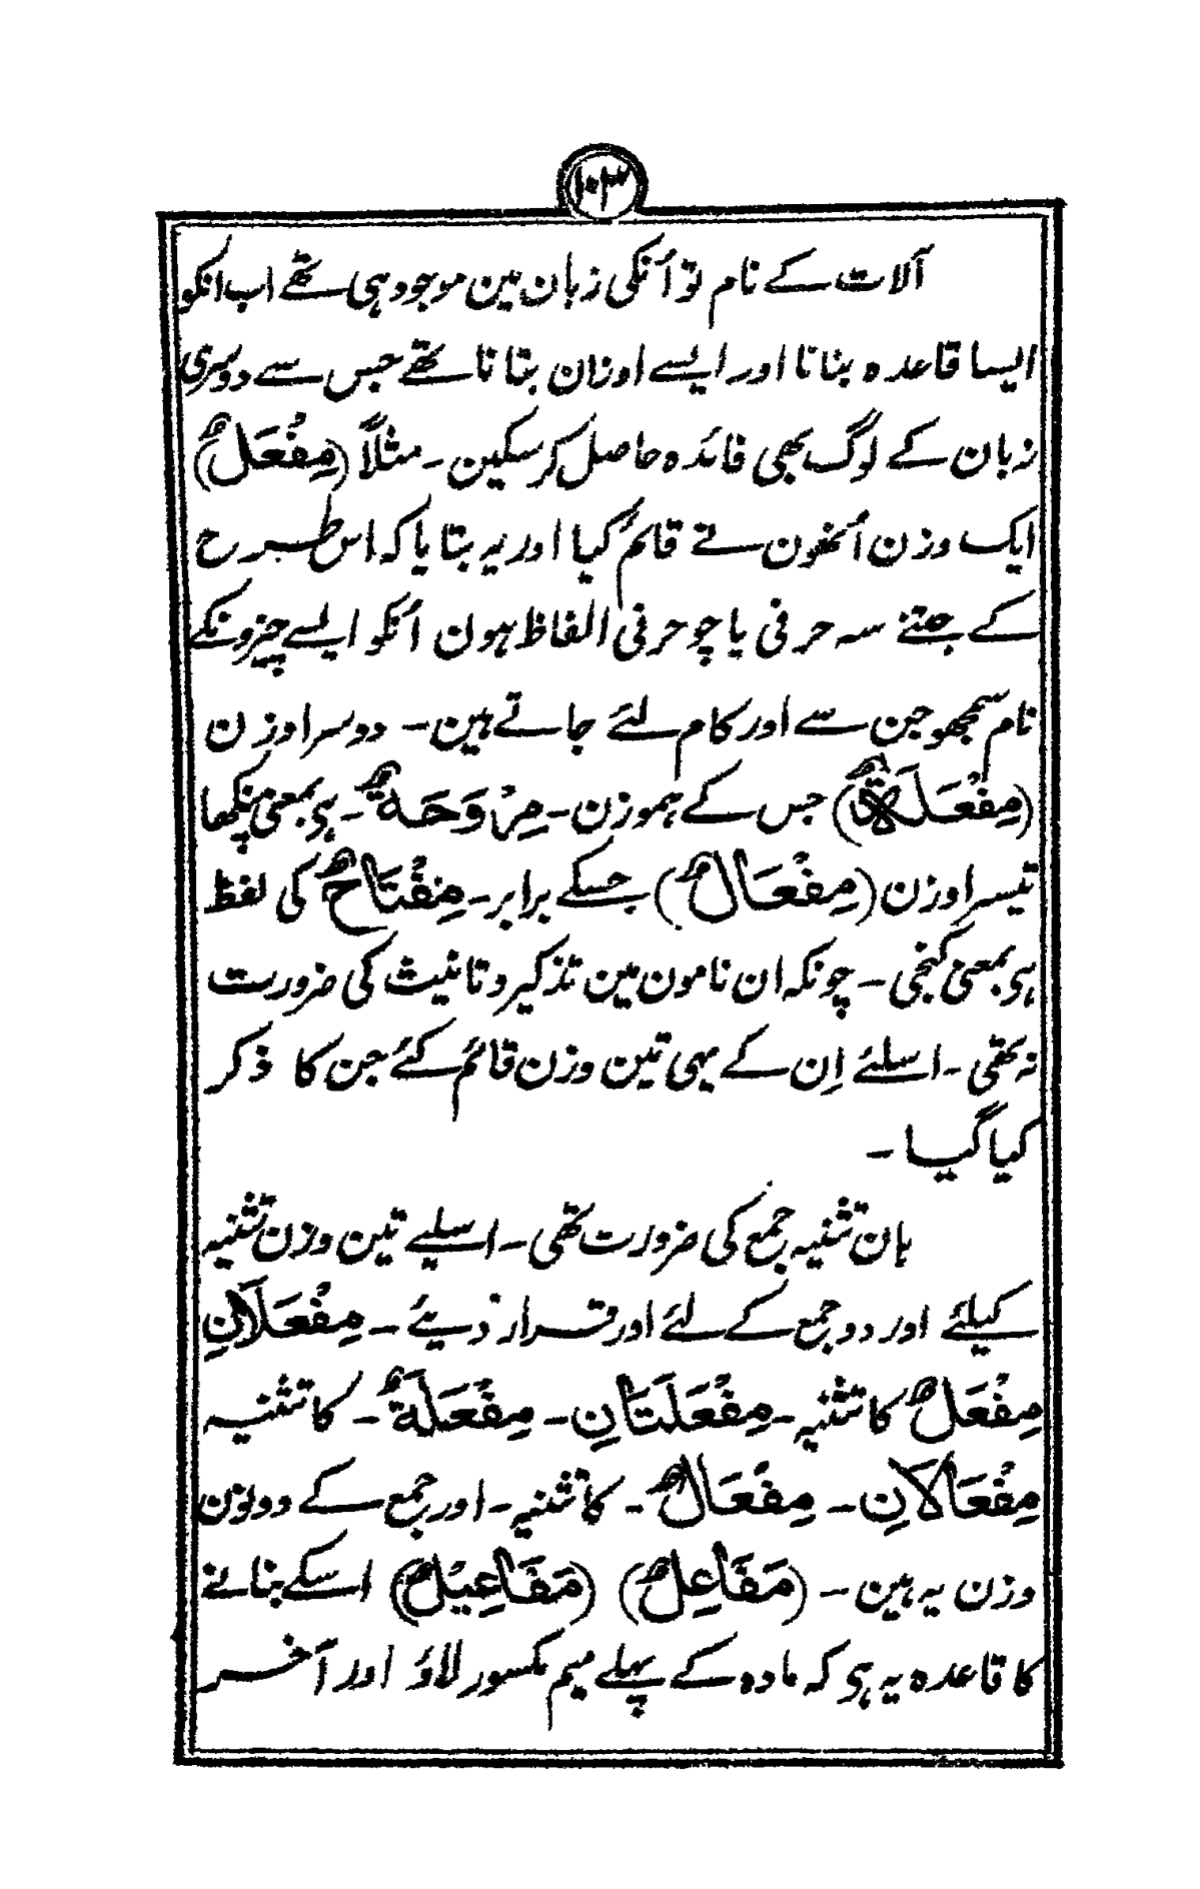 ۱۰۳
آلات کے نام تو اُنکی زبان مین موجود ہی تھے اب انکو
ایسا قاعدہ بنانا اور ایسے اوزان بتانا تھے جس سے دوسری
زبان کے لوگ بھی فائدہ حاصل کر سکین ۔ مثلاً (مِفْعَلٌ)
ایک وزن اُنھون نے قائم کیا اور یہ بتایا کہ اس طرح
کے جتنے سہ حرفی یا چو حرفی الفاظ ہون اُنکو ایسے چیزونکے
نام سمجھو جن سے اور کام لئے جاتے ہین ۔ دوسرا وزن
(مِفْعَلَةٌ) جس کے ہموزن ۔ مِرْوَحَةٌ ۔ ہی بمعنی پنکھا
تیسرا وزن (مِفْعَالٌ) جسکے برابر ۔ مِفْتَاحٌ کی لفظ
ہی بمعنی کنجی ۔ چونکہ ان نامون مین تذکیر و تانیث کی ضرورت
نہ تھی ۔ اسلئے اِن کے یہی تین وزن قائم کئے جن کا ذکر
کیا گیا ۔
ہان تثنیہ جمع کی ضرورت تھی ۔ اسلیے تین وزن تثنیہ
کیلئے اور دو جمع کے لئے اور قرار دیئے ۔ مِفْعَلَانِ
مِفْعَلٌ کا تثنیہ ۔ مِفْعَلَتَانِ ۔ مِفْعَلَةٌ ۔ کا تثنیہ
مِفْعَالَانِ ۔ مِفْعَالٌ ۔ کا تثنیہ ۔ اور جمع کے دونون
وزن یہ ہین ۔ (مَفَاعِلٌ) (مَفَاعِیْلٌ) اسکے بنانے
کا قاعدہ یہ ہی کہ مادہ کے پہلے میم مکسور لاؤ اور آخر